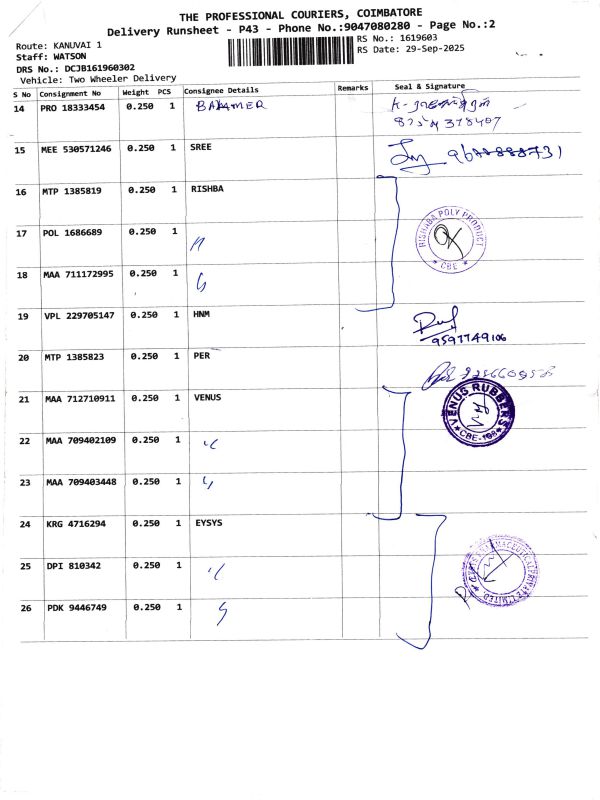 THE PROFESSIONAL COURIERS, COIMBATORE
Delivery Runsheet - P43 - Phone No.:9047080280 - Page No.:2
Route: KANUVAI 1
Staff: WATSON
DRS No.: DCJB161960302
Vehicle: Two Wheeler Delivery
RS No.: 1619603
RS Date: 29-Sep-2025
S No Consignment No Weight PCS Consignee Details Remarks Seal & Signature
14 PRO 18333454 0.250 1
378407
15 MEE 530571246 0.250 1 SREE
16 MTP 1385819 0.250 1 RISHBA
17 POL 1686689 0.250 1 "
RISHABA POLY PRODUCT
* CBE *
18 MAA 711172995 0.250 1
19 VPL 229705147 0.250 1 HNM
9597749106
20 MTP 1385823 0.250 1 PER
21 MAA 712710911 0.250 1 VENUS
VENUS RUBBERS
22 MAA 709402109 0.250 1 "
23 MAA 709403448 0.250 1 "
24 KRG 4716294 0.250 1 EYSYS
25 DPI 810342 0.250 1 "
26 PDK 9446749 0.250 1 "